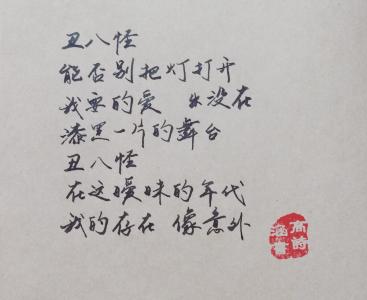 丑八怪
能否别把灯打开
我要的爱 出没在
漆黑一片的舞台
丑八怪
在这暧昧的年代
我的存在 像意外
高詩
涵書